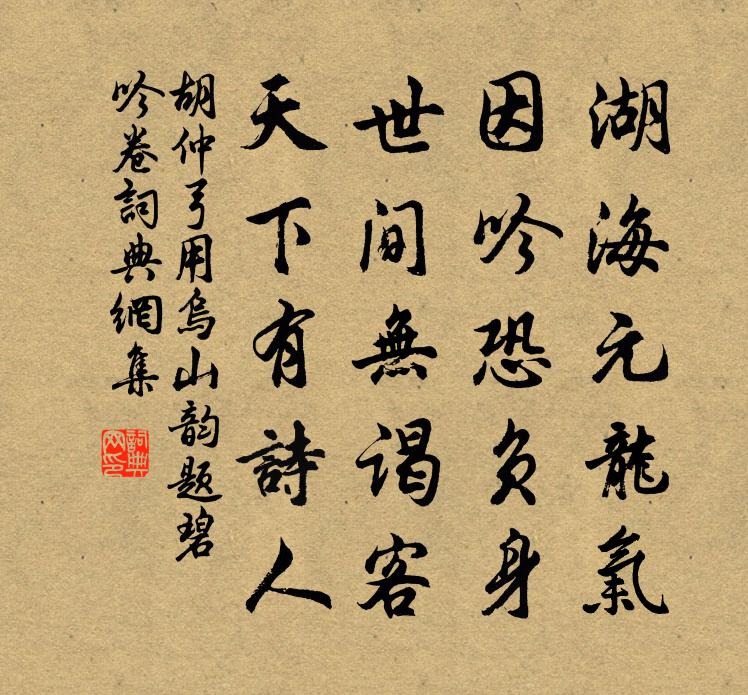 湖海元龍氣
因吟恐負身
世間無谒客
天下有詩人
胡仲弓用烏山韵題碧
吟卷詞典網集
詞典
网印